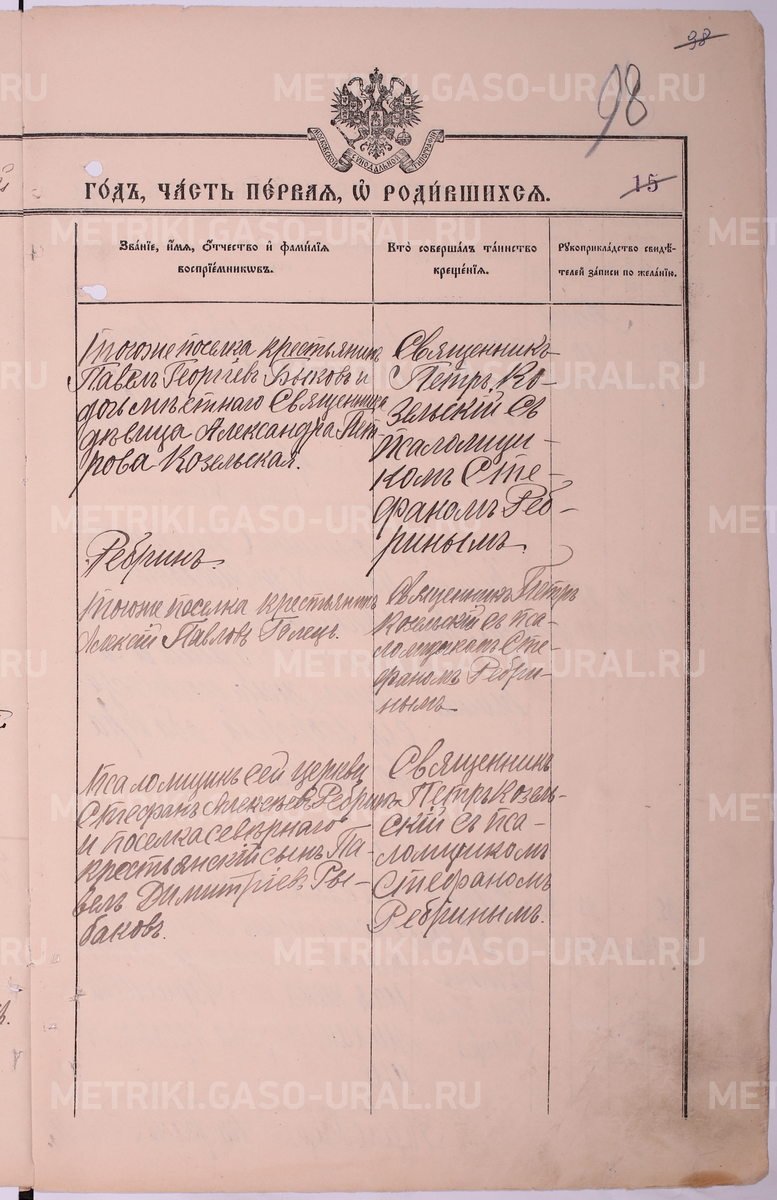 98
98
МОСКОВСКОЙ СѴНОДАЛЬНОЙ ТИПОГРАФІИ
ГО́ДЪ, ЧА́СТЬ ПЕ́РВАѦ, Ѡ҆ РОДИ́ВШИХСѦ.
15
Зва́нїе, и҆́мѧ, ѻ҆́тчество и҆ фами́лїѧ
воспрїе́мникѡвъ.
Кто̀ соверша́лъ та́инство
креще́нїѧ.
Рꙋкоприкла́дство свидѣ́-
телей за́писи по жела́нїю.
Тогоже поселка крестьянинъ
Павелъ Георгіевъ Быковъ и
дочь мѣстнаго Священника
дѣвица Александра Пет
рова Козельская.
Священникъ
Петръ Ко-
зельскій съ
псаломщи-
комъ Сте-
фаномъ Реб-
ринымъ.
Ребринъ.
Тогоже поселка крестьянинъ
Алексій Павловъ Голецъ.
Священникъ Петръ
Козельскій съ пса-
ломщикомъ Сте-
фаномъ Ребри-
нымъ
Псаломщикъ сей церкви
Стефанъ Алексѣевъ Ребринъ
и поселка Сѣвернаго
крестьянскій сынъ Па-
велъ Димитріевъ Ры-
баковъ.
Священникъ
Петръ Козель-
скій съ пса-
ломщикомъ
Стефаномъ
Ребринымъ.
METRIKI.GASO-URAL.RU